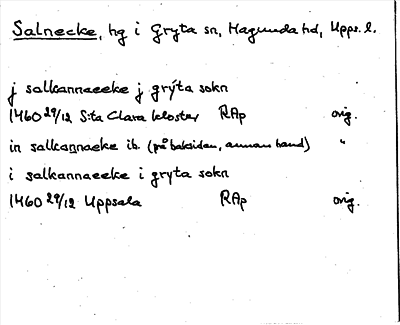 Salnecke, hg i Gryta sn, Hagunda hd, Upps. l.
j salkannaeeke j grẏta sokn
1460 29/12 S:ta Clara kloster RAp orig.
in salkannaeke ib. (på baksidan, annan hand) "
i salkannaeeke i gryta sokn
1460 29/12 Uppsala RAp orig.